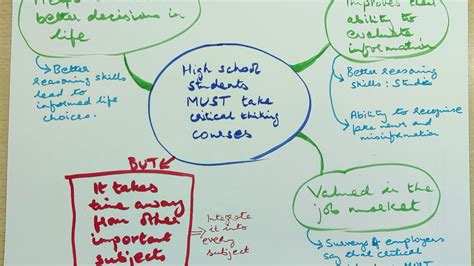 better decisions in
life
Better
reasoning skills
lead to
informed life
choices.
Improves their
ability to
evaluate
information
Better reasoning
skills: Studies
Ability to recognise
fake news and
misinformation
High school
students
MUST take
critical thiking
courses
BUT
It takes
time away
from other
important
subjects
Integrate
it into
every
subject
Valued in the
job market
Surveys of employers
say that critical